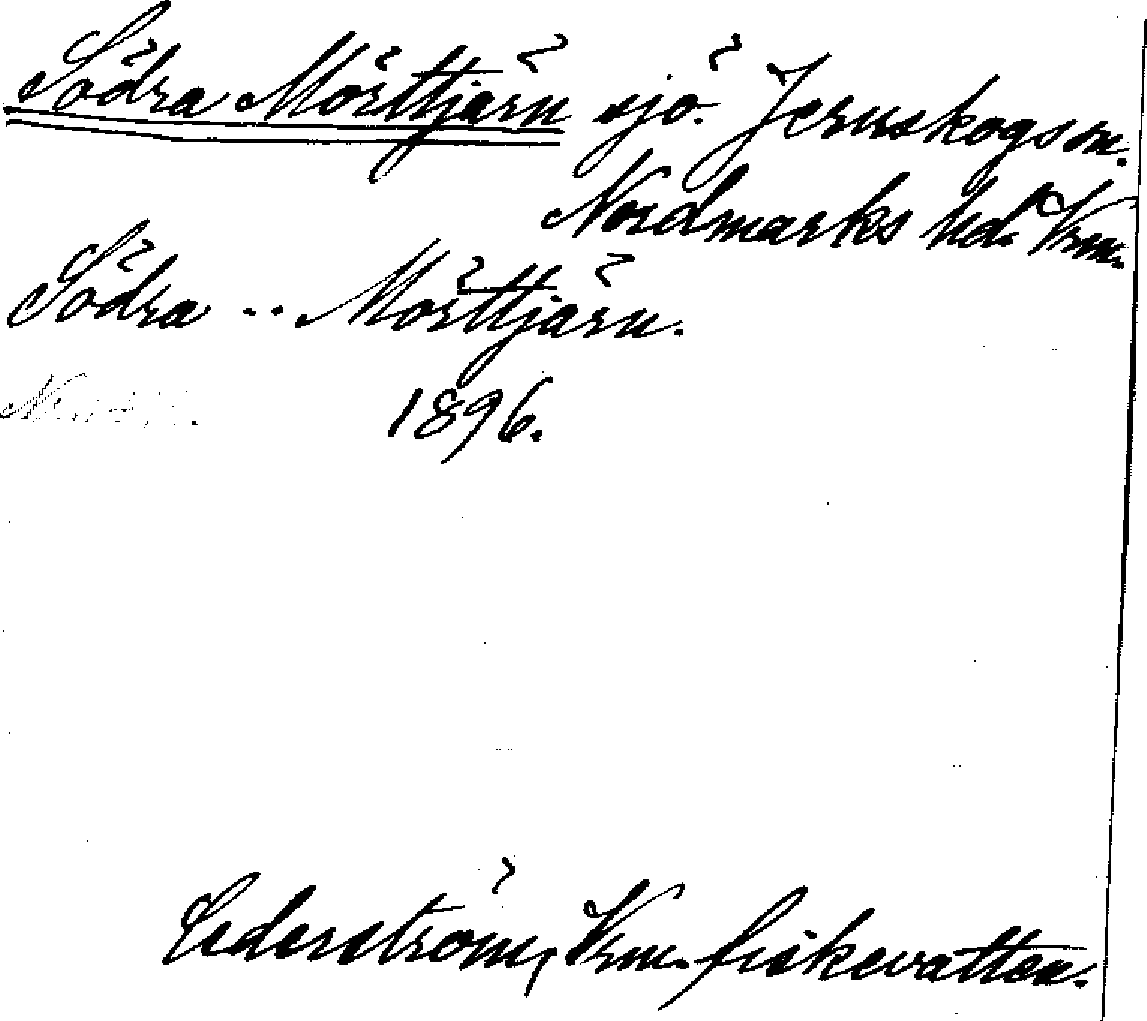 Södra Mörttjärn sjö. Jernskogs sn.
Nordmarks hd. Vrm.
Södra -- Mörttjärn.
1896.
Cederström, Vrm. fiskevatten.